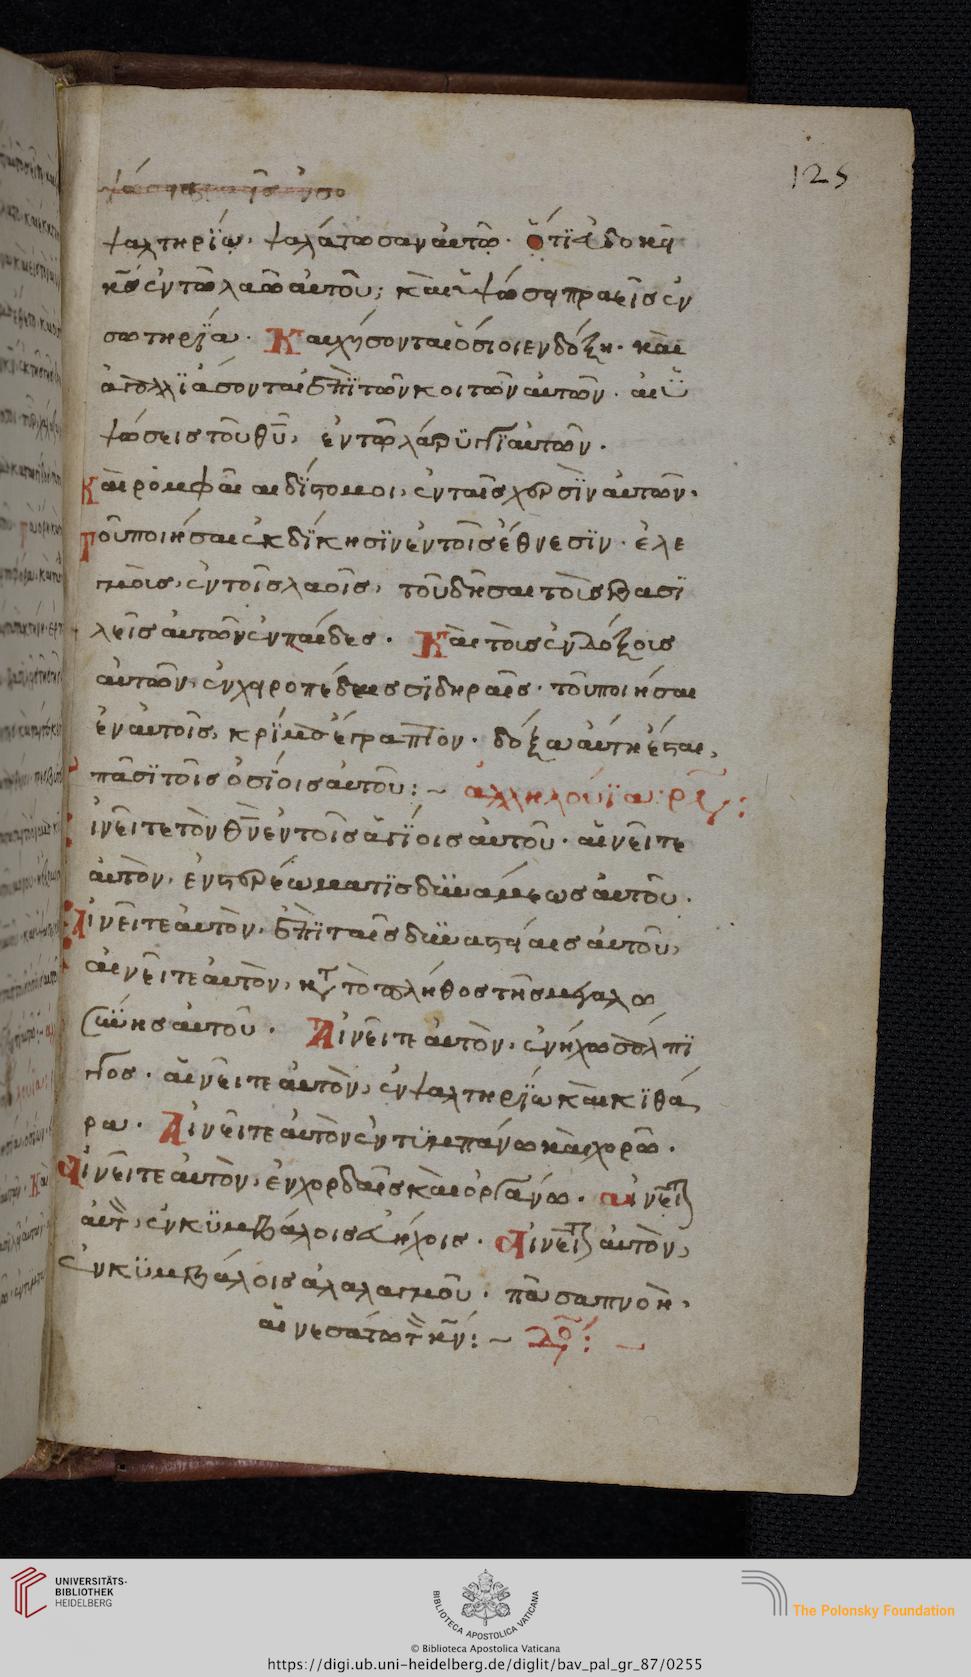 125
ψαλτηρίω, ψαλάτωσαν αὐτῶ. ὅτι εὐδοκεῖ
κ̅ς ἐν τῶ λαῶ αὐτοῦ; καὶ ὑψώσει πραεῖς ἐν
σωτηρία. Καυχήσονται ὅσιοι ἐν δόξη. καὶ
ἀγαλλιάσονται ἐπὶ τῶν κοιτῶν αὐτῶν. αἱ ὑ
ψώσεις τοῦ θ̅υ, ἐν τῶ λάρυγγι αὐτῶν.
Καὶ ρομφαῖαι δίστομοι, ἐν ταῖς χερσὶν αὐτῶν.
Τοῦ ποιῆσαι ἐκδίκησιν ἐν τοῖς ἔθνεσιν. ἐλε
γμοὺς, ἐν τοῖς λαοῖς, τοῦ δῆσαι τοὺς βασι
λεῖς αὐτῶν ἐν παίδες. Καὶ τοὺς ἐνδόξοις
αὐτῶν, ἐν χειροπέδαις σιδηραῖς. τοῦ ποιῆσαι
ἐν αὐτοῖς, κρίμα ἔγραπτον. δόξα αὕτη ἔσται,
πᾶσι τοῖς ὁσίοις αὐτοῦ: ~ ἀλληλούια: ρν:
ἰνεῖτε τὸν θ̅ν ἐν τοῖς ἁγίοις αὐτοῦ. αἰνεῖτε
αὐτὸν, ἐν στερεώματι δυνάμεως αὐτοῦ.
Αἰνεῖτε αὐτὸν, ἐπὶ ταῖς δυναστείαις αὐτοῦ,
αἰνεῖτε αὐτὸν, κτ τὸ πλῆθος τῆς μεγαλω
σύνης αὐτοῦ. Αἰνεῖτε αὐτὸν, ἐν ήχω σάλπι
γγος. αἰνεῖτε αὐτὸν, ἐν ψαλτηρίω καὶ κιθά
ρα. Αἰνεῖτε αὐτὸν ἐν τυμπάνω καὶ χορῶ.
Αἰνεῖτε αὐτὸν, ἐν χορδαῖς καὶ ὀργάνω. αἰνεῖτε
αὐτ, ἐν κυμβάλοις εὐήχοις. Αἰνεῖτε αὐτὸν,
ἐν κυμβάλοις ἀλαλαγμοῦ. πᾶσα πνοὴ,
αἰνεσάτω τ κ̅ν: ~
UNIVERSITÄTS-
BIBLIOTHEK
HEIDELBERG
BIBLIOTECA APOSTOLICA VATICANA
The Polonsky Foundation
© Biblioteca Apostolica Vaticana
https://digi.ub.uni-heidelberg.de/diglit/bav_pal_gr_87/0255